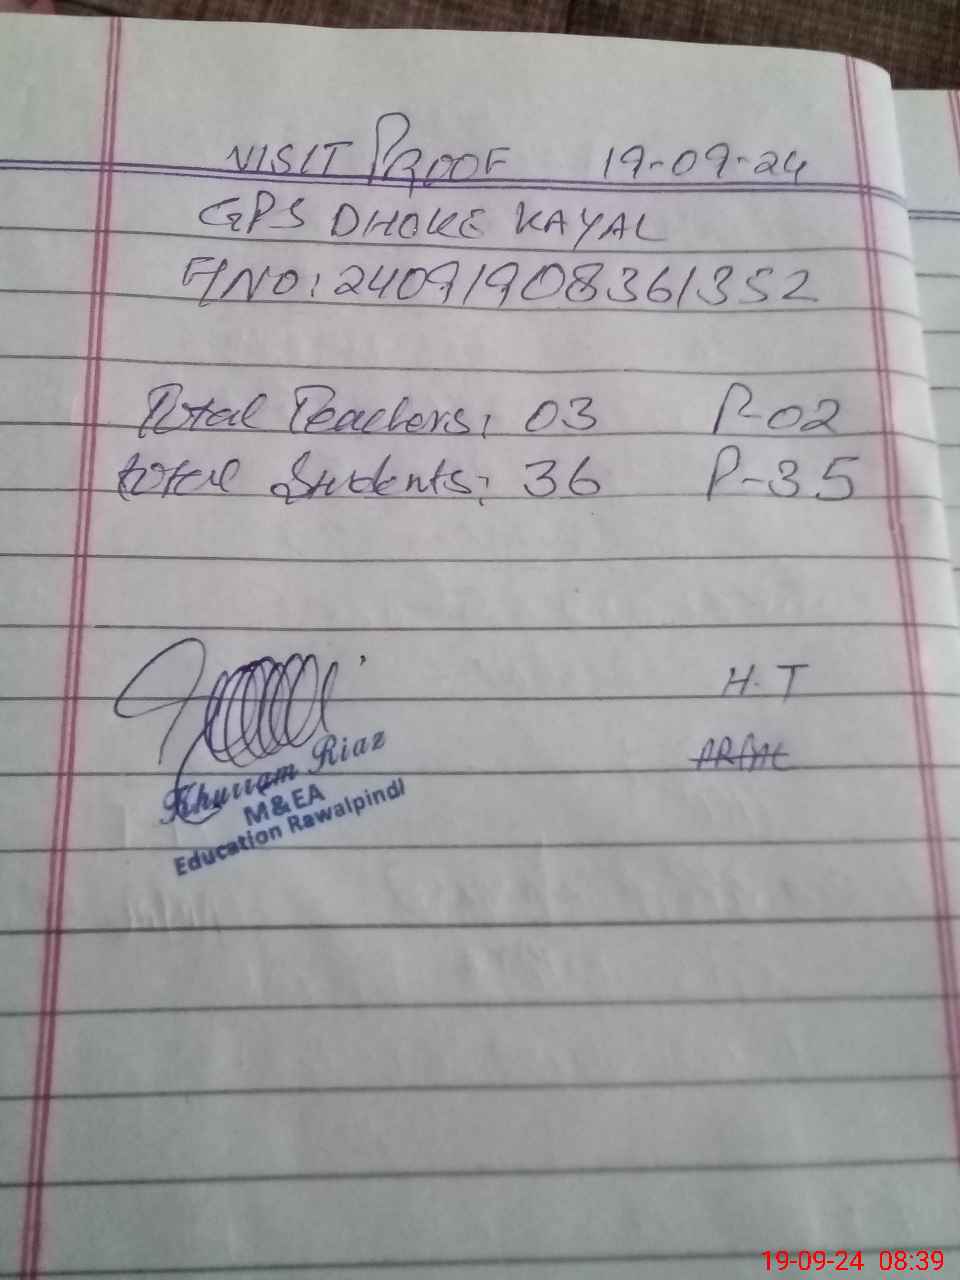 VISIT PROOF 19-09-24
GPS DHOKE KAYAL
F/NO: 24091908361352
Total Teachers: 03 P-02
total Students: 36 P-35
H.T
Khurram Riaz
M&EA
Education Rawalpindi
19-09-24 08:39